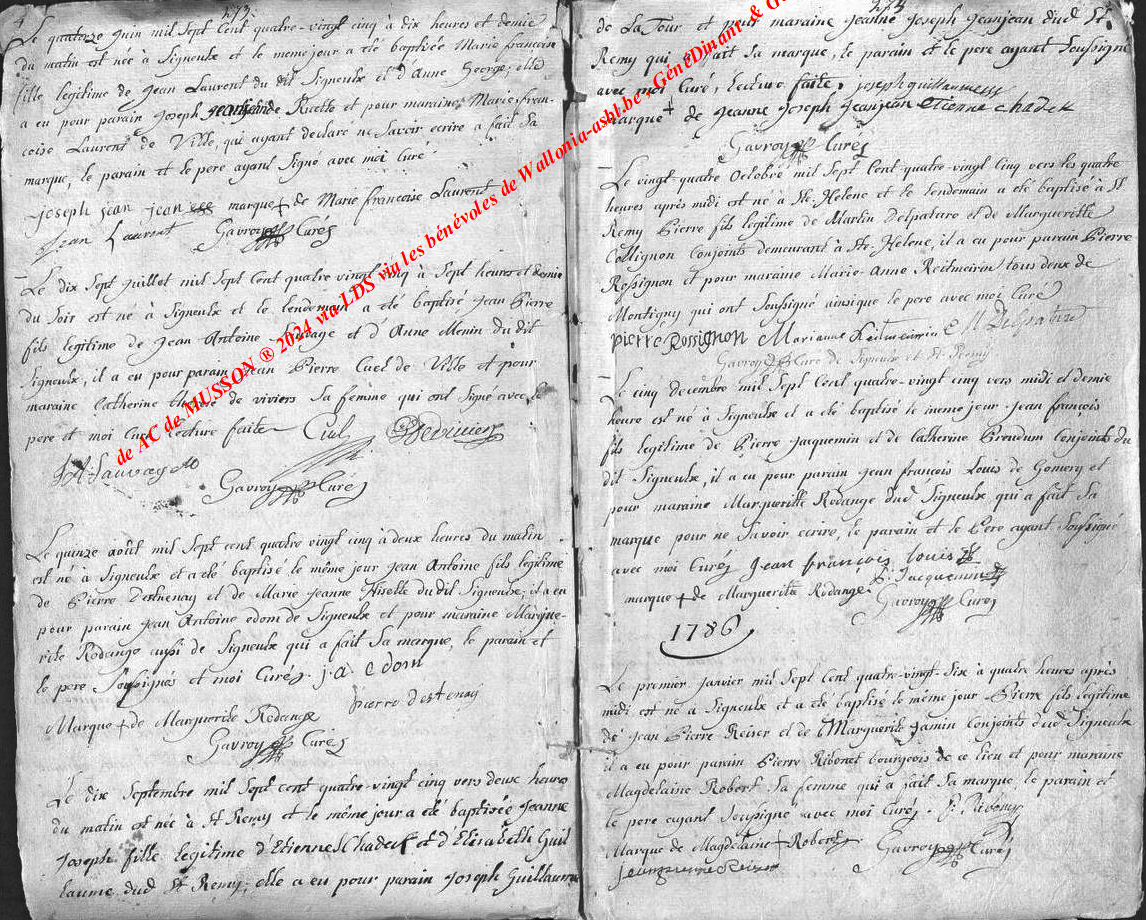 4
473.
Le quatorze juin mil Sept Cent quatre-vingt cinq à dix heures et demie
du matin est née à Signeulx et le meme jour a eté baptisée Marie francoise
fille legitime de Jean Laurent du dit Signeulx et d'Anne George; elle
a eu pour parain Joseph Jeanjean de Ruette et pour maraine Marie, fran-
coise Laurent de Ville, qui ayant declare ne Savoir ecrire a fait Sa
marque, le parain et le pere ayant Signé avec moi Curé.
joseph jean jean marque + de Marie francoise Laurent
Jean Laurent Gavroy Curé
Le dix Sept juillet mil Sept Cent quatre-vingt cinq à Sept heures et demie
du Soir est né à Signeulx et le lendemain a eté baptisé Jean Pierre
fils legitime de Jean Antoine Sauvage et d'Anne Menin du dit
Signeulx, il a eu pour parain Jean Pierre Cuel de Ville et pour
maraine Catherine de viviers Sa femme qui ont Signé avec le
pere et moi Curé lecture faite Cuel Deviviers
JA Sauvage
Gavroy Curé
Le quinze août mil Sept cent quatre vingt cinq à deux heures du matin
est né à Signeulx et a eté baptisé le même jour Jean Antoine fils legitime
de Pierre Destenay et de Marie Jeanne du dit Signeulx; il a eu
pour parain Jean Antoine edom de Signeulx et pour maraine Margue-
rite Rodange aussi de Signeulx qui a fait Sa marque, le parain et
le pere Soussignés et moi Curé. j. a. edom
Marque + de Marguerite Rodange pierre destenay
Gavroy Curé
Le dix Septembre mil Sept cent quatre-vingt cinq vers deux heures
du matin est née à St Remy et le même jour a eté baptisée Jeanne
Joseph fille legitime d'Etienne Chadeck et d'Elisabeth Guil
laume dud St Remy; elle a eu pour parain Joseph Guillaume
de La Tour et pour maraine Jeanne Joseph Jeanjean dud St
Remy qui a fait Sa marque, le parain et le pere ayant Soussigné
avec moi Curé, lecture faite, joseph guillaume
marque + de Jeanne Joseph Jeanjean etienne chadek
Gavroy Curé
Le vingt-quatre Octobre mil Sept Cent-quatre-vingt Cinq vers les quatre
heures après midi est né à Ste Helene et le lendemain a eté baptisé à St
Remy Pierre fils legitime de Martin Delpature et de Margueritte
Collignon Conjoints demeurant à Ste Helene, il a eu pour parain Pierre
Rossignon et pour maraine Marie-Anne Reitmeiren tous deux de
Montigny qui ont Soussigné ainsique le pere avec moi Curé
pierre Rossignon Marianne Reitmeirin M Delpature
Gavroy Curé de Signeulx et St Remy
Le cinq decembre mil Sept Cent quatre-vingt cinq vers midi et demie
heure est né à Signeulx et a eté baptisé le meme jour Jean françois
fils legitime de Pierre Jacquemin et de Catherine Conjoints du
dit Signeulx, il a eu pour parain Jean françois Louis de Gomery et
pour maraine Margueritte Rodange dud Signeulx qui a fait Sa
marque pour ne Savoir ecrire, le parain et le Pere ayant Soussigné
avec moi Curé Jean francois louis
P. Jacquemin
marque + de Margueritte Rodange Gavroy Curé
1786
Le premier janvier mil Sept Cent quatre-vingt-Six à quatre heures après
midi est né à Signeulx et a eté baptisé le même jour Pierre fils legitime
de Jean Pierre Reiser et de Marguerite Jamin Conjoints dud Signeulx
il a eu pour parain Pierre Ribonet bourgeois de ce lieu et pour maraine
Magdelaine Robert Sa femme qui a fait Sa marque, le parain et
le pere ayant Soussigné avec moi Curé.
Marque de Magdelaine + Robert Gavroy Curé
de AC de MUSSON ® 2024 via LDS via les bénévoles de Wallonia-asbl.be - GénéDinant & G